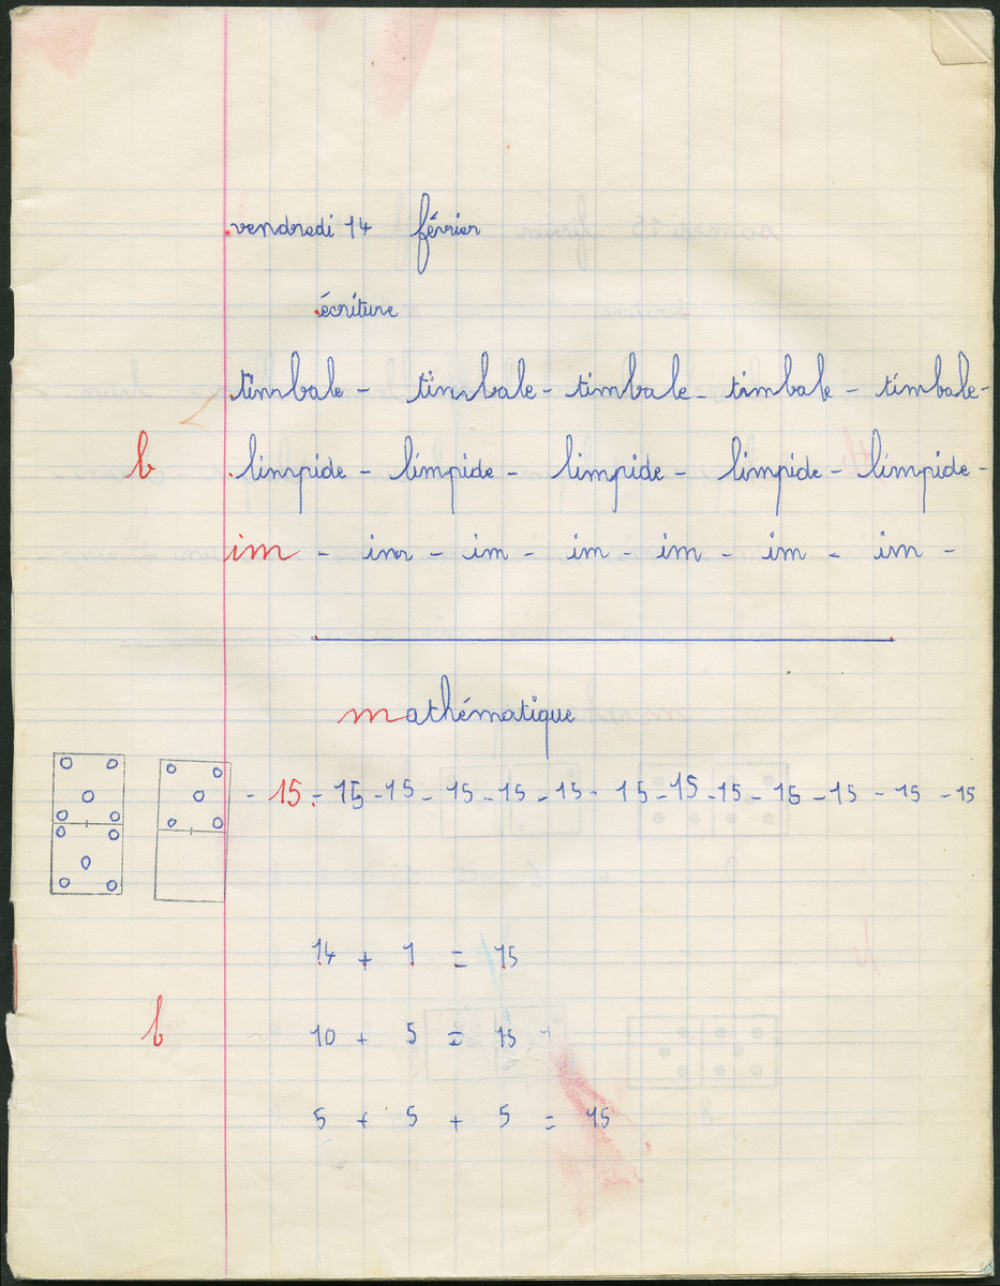 vendredi 14 février
écriture
timbale - timbale - timbale - timbale - timbale -
b limpide - limpide - limpide - limpide - limpide -
im - im - im - im - im - im - im -
mathématique
- 15 - 15 - 15 - 15 - 15 - 15 - 15 - 15 - 15 - 15 - 15 - 15 - 15
14 + 1 = 15
b 10 + 5 = 15
5 + 5 + 5 = 15